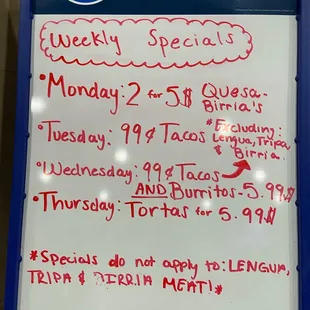 Weekly Specials
• Monday: 2 for 5$ Quesa-
Birria's
• Tuesday: 99¢ Tacos
* Excluding:
Lengua, Tripa
& Birria.
• Wednesday: 99¢ Tacos
AND Burritos - 5.99$
• Thursday: Tortas for 5.99$
* Specials do not apply to: LENGUA,
TRIPA & BIRRIA MEAT! *